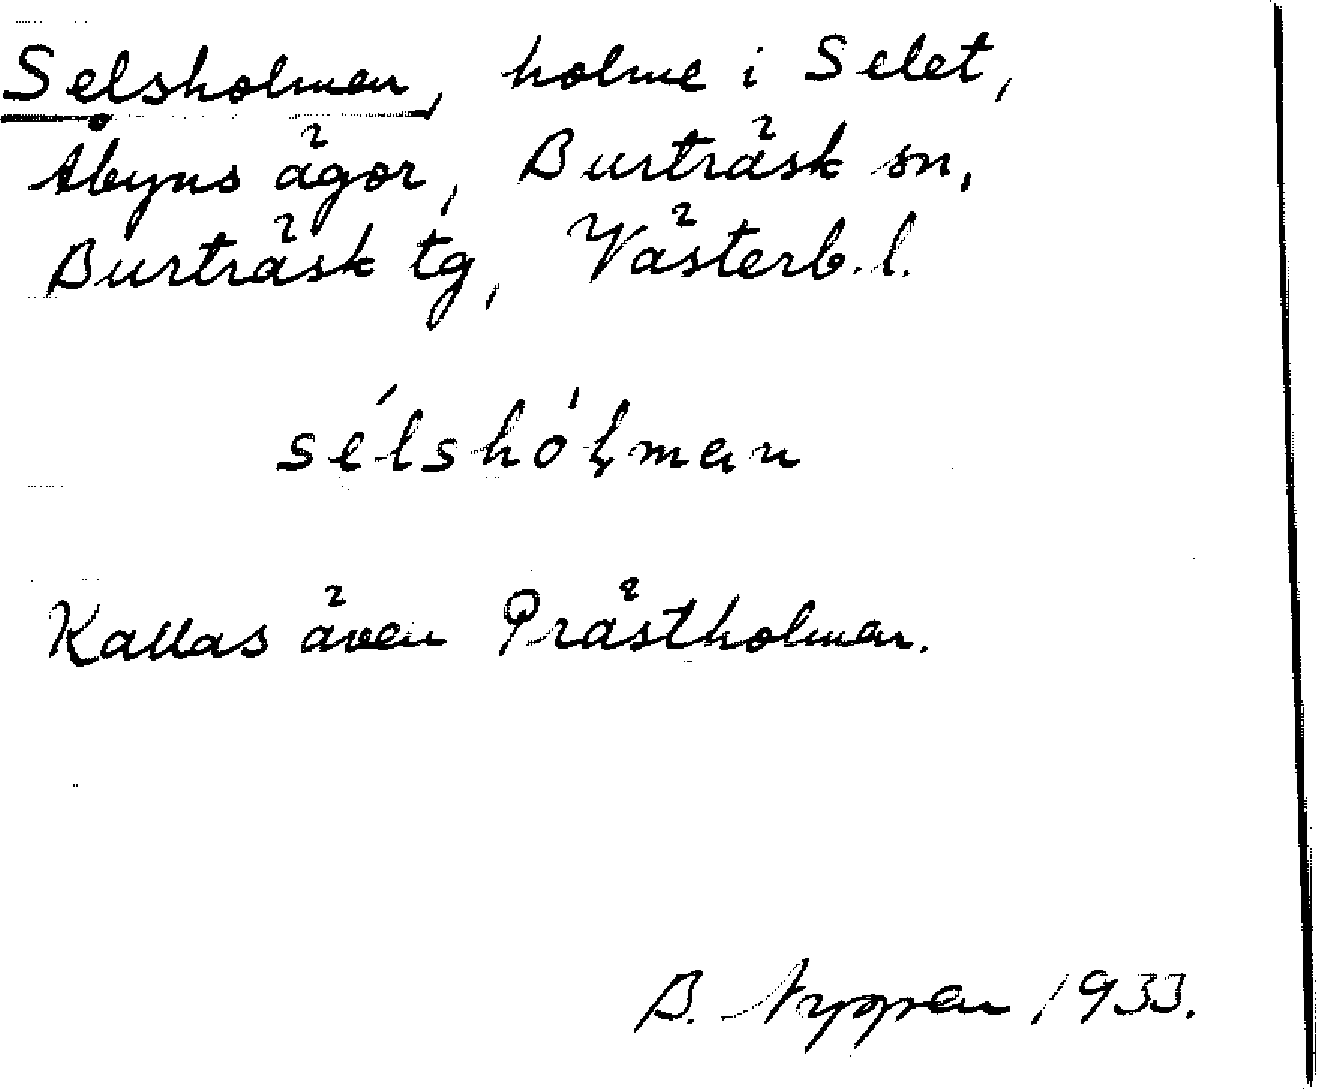 Selsholmen, holme i Selet,
Åbyns ägor, Burträsk sn,
Burträsk tg, Västerb. l.
sélshólman
Kallas även Prästholmen.
B. 1933.